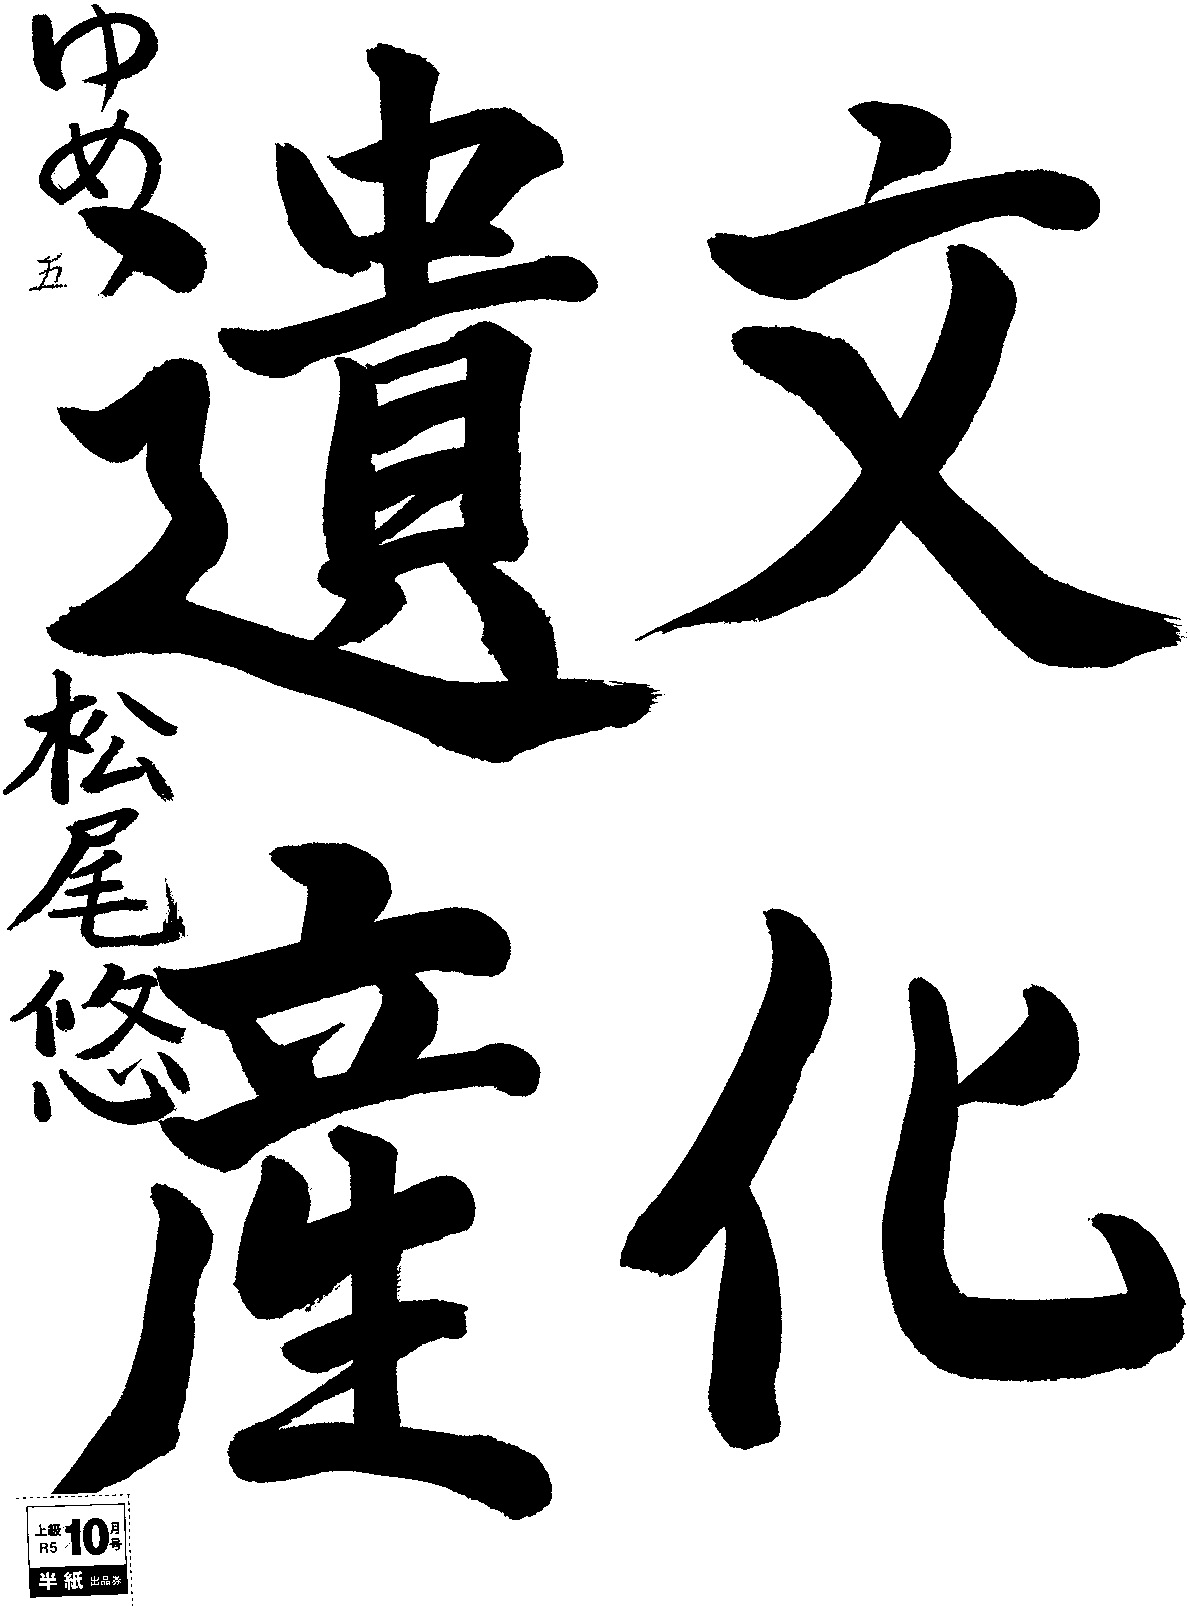 文化
遺産
ゆめ人
五
松尾悠
上級 R5 10月号
半紙 出品券